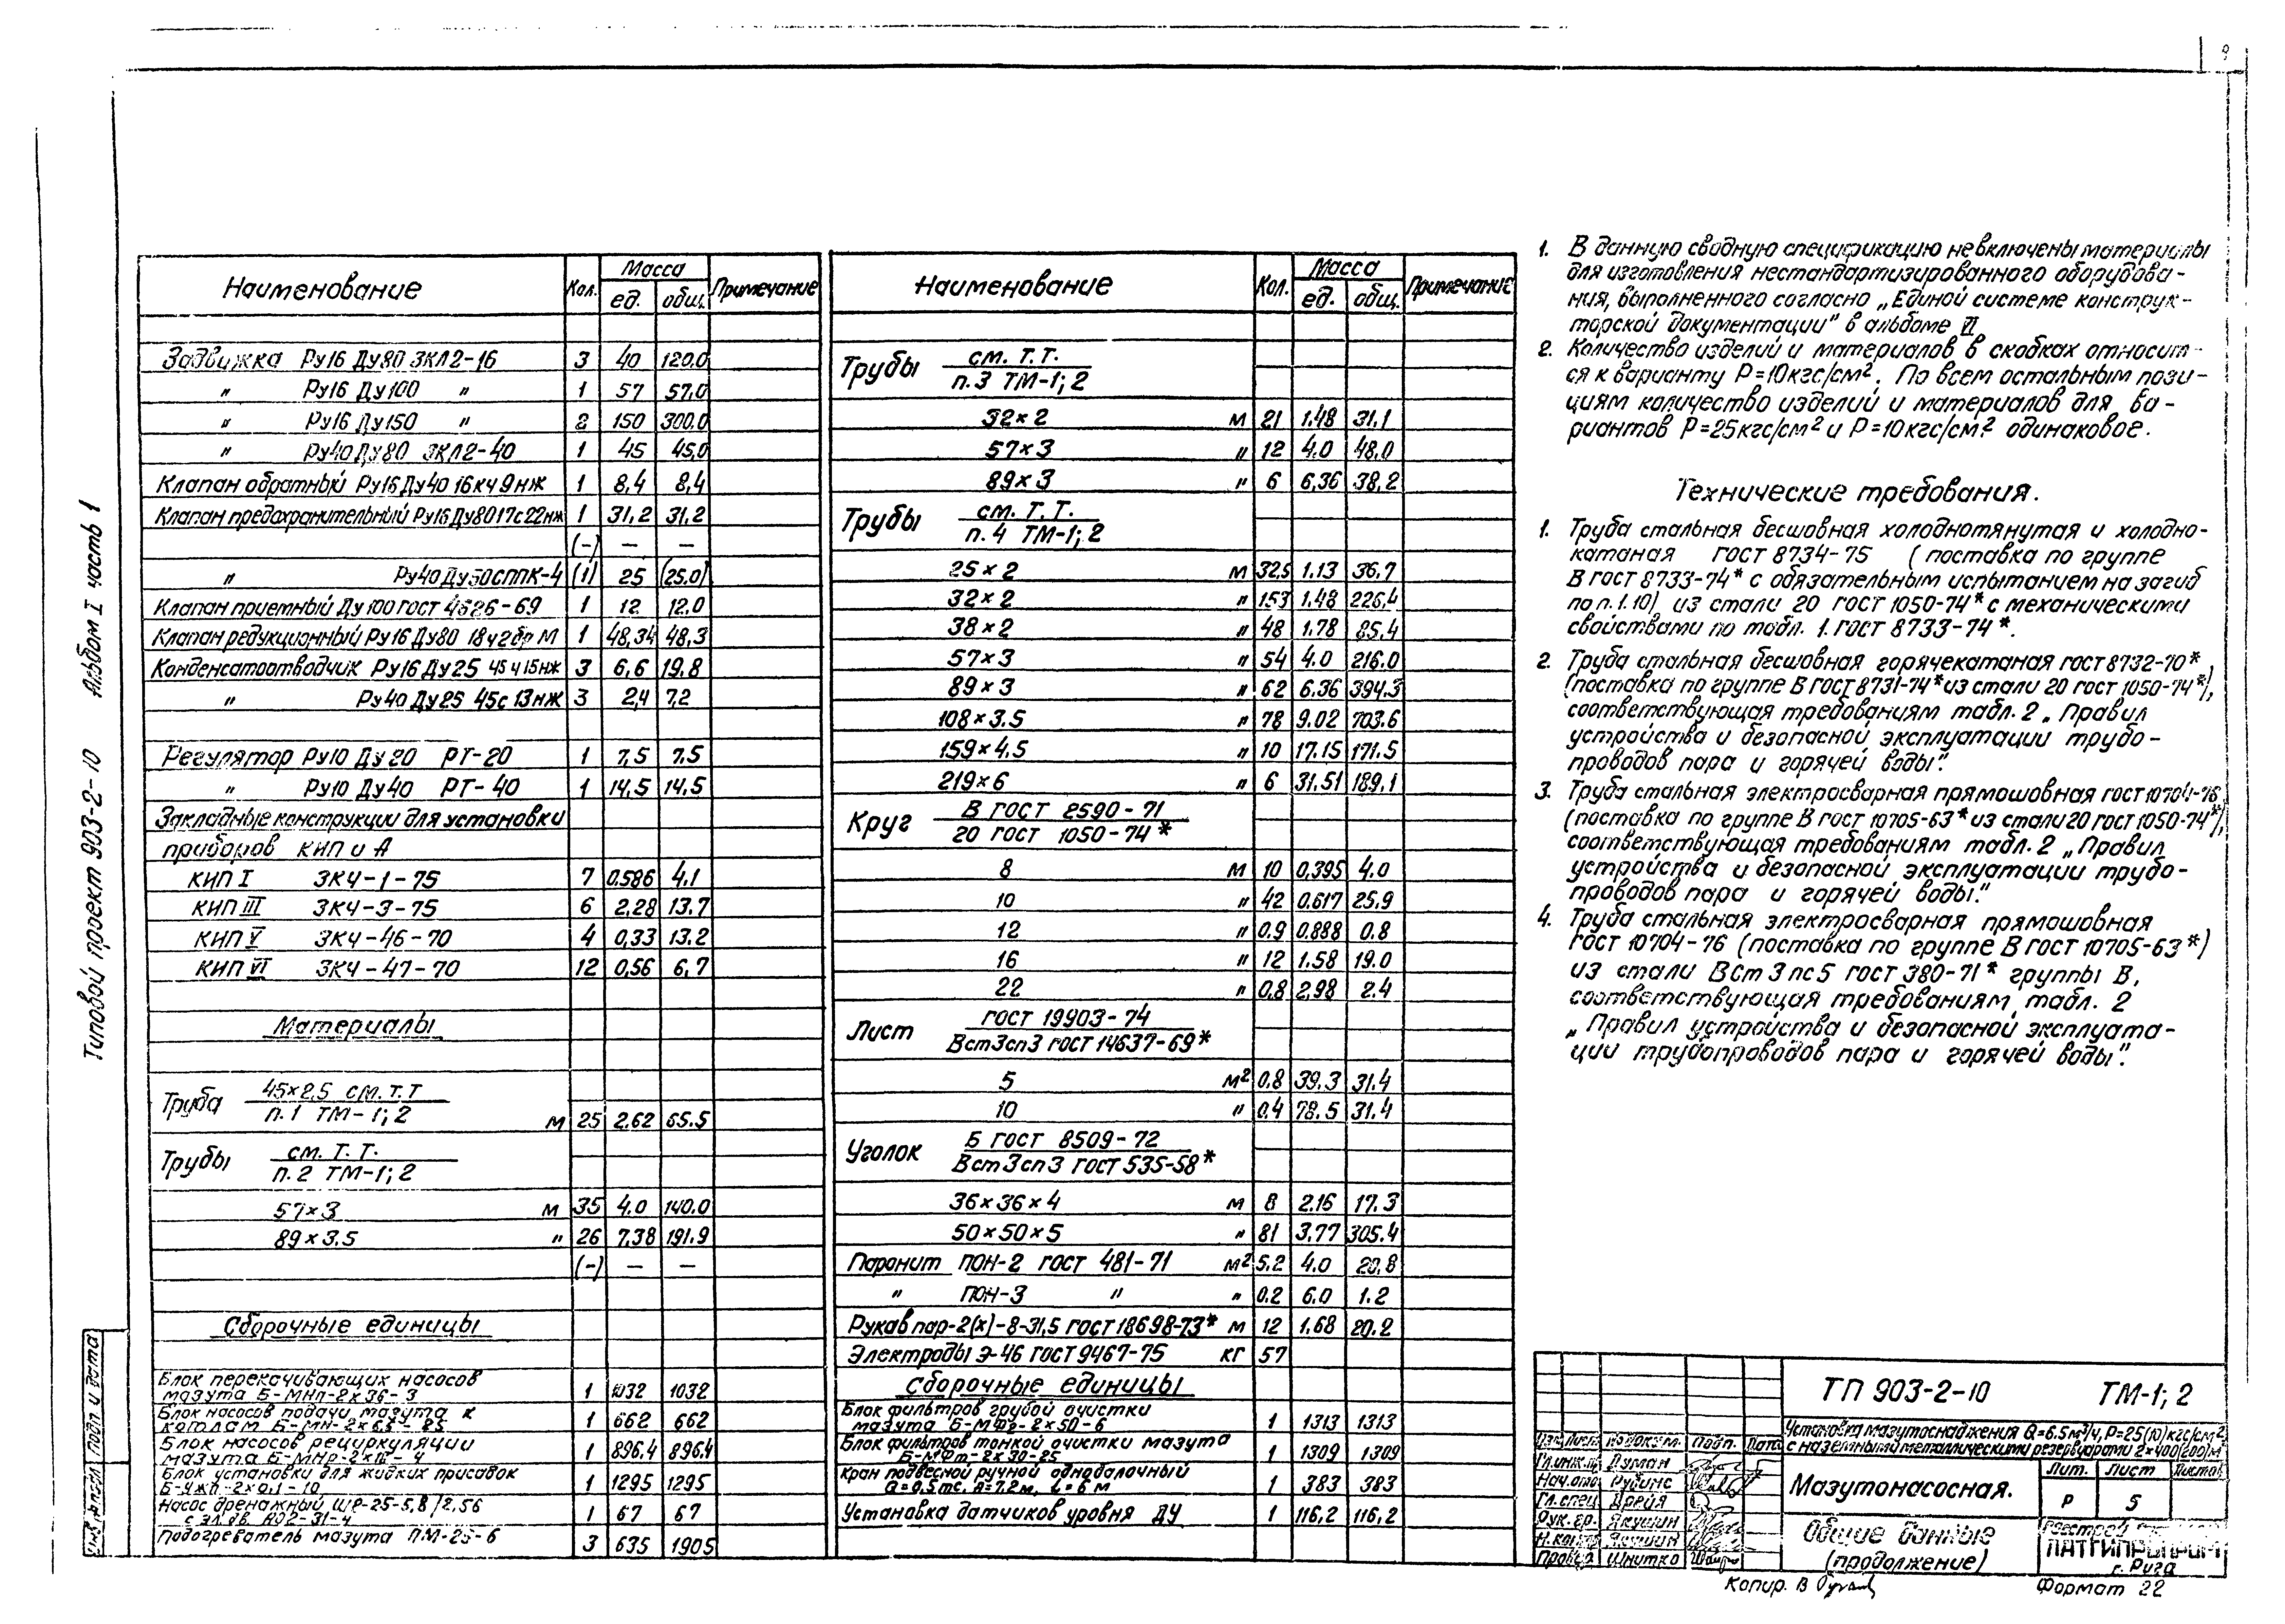 9
Альбом I часть 1
Типовой проект 903-2-10
Наименование Кол. Масса Примечание
ед. общ.
Задвижка Ру16 Ду80 ЗКЛ2-16 3 40 120.0
" Ру16 Ду100 " 1 57 57.0
" Ру16 Ду150 " 2 150 300.0
" Ру40 Ду80 ЗКЛ2-40 1 45 45.0
Клапан обратный Ру16 Ду40 16кч9нж 1 8,4 8,4
Клапан предохранительный Ру16 Ду80 17с22нж 1 31,2 31,2
(-) — —
" Ру40 Ду50 СППК-4 (1) 25 (25.0)
Клапан приемный Ду100 ГОСТ 4626-69 1 12 12.0
Клапан редукционный Ру16 Ду80 18ч2бр М 1 48,34 48,3
Конденсатоотводчик Ру16 Ду25 45ч15нж 3 6,6 19.8
" Ру40 Ду25 45с13нж 3 2,4 7,2
Регулятор Ру10 Ду20 РТ-20 1 7,5 7,5
" Ру10 Ду40 РТ-40 1 14,5 14,5
Закладные конструкции для установки
приборов КИП и А
КИП I ЗКЧ-1-75 7 0.586 4.1
КИП III ЗКЧ-3-75 6 2,28 13.7
КИП V ЗКЧ-46-70 4 0,33 13.2
КИП VI ЗКЧ-47-70 12 0,56 6,7
Материалы
Труба 45×2,5 см. т. т
п. 1 ТМ-1; 2 м 25 2.62 65.5
Трубы см. т. т.
п. 2 ТМ-1; 2
57×3 м 35 4.0 140.0
89×3.5 " 26 7,38 191.9
(-) — —
Сборочные единицы
Блок перекачивающих насосов
мазута Б-МНп-2×36-3 1 1032 1032
Блок насосов подачи мазута к
котлам Б-МН-2×6,5-25 1 662 662
Блок насосов рециркуляции
мазута Б-МНр-2×18-4 1 896.4 896.4
Блок установки для жидких присадок
Б-УЖП-2×0,1-10 1 1295 1295
Насос дренажный ШР-25-5,8/2,5б
с эл.дв. АО2-31-4 1 67 67
Подогреватель мазута ПМ-25-6 3 635 1905
Наименование Кол. Масса Примечание
ед. общ.
Трубы см. т. т.
п. 3 ТМ-1; 2
32×2 м 21 1.48 31.1
57×3 " 12 4.0 48.0
89×3 " 6 6,36 38,2
Трубы см. т. т.
п. 4 ТМ-1; 2
25×2 м 32,5 1.13 36.7
32×2 " 153 1.48 226.4
38×2 " 48 1.78 85.4
57×3 " 54 4.0 216.0
89×3 " 62 6.36 394.3
108×3.5 " 78 9.02 703.6
159×4.5 " 10 17.15 171.5
219×6 " 6 31.51 189.1
Круг В ГОСТ 2590-71
20 ГОСТ 1050-74*
8 м 10 0,395 4.0
10 " 42 0.617 25.9
12 " 0.9 0.888 0.8
16 " 12 1.58 19.0
22 " 0,8 2,98 2.4
Лист ГОСТ 19903-74
Вст3сп3 ГОСТ 14637-69*
5 м² 0.8 39.3 31.4
10 " 0.4 78.5 31.4
Уголок Б ГОСТ 8509-72
Вст3сп3 ГОСТ 535-58*
36×36×4 м 8 2.16 17.3
50×50×5 " 81 3.77 305.4
Паронит ПОН-2 ГОСТ 481-71 м² 5.2 4.0 20,8
" ПОН-3 " " 0.2 6.0 1.2
Рукав пар-2(х)-8-31,5 ГОСТ 18698-73* м 12 1,68 20.2
Электроды Э-46 ГОСТ 9467-75 кг 57
Сборочные единицы
Блок фильтров грубой очистки
мазута Б-МФг-2×50-6 1 1313 1313
Блок фильтров тонкой очистки мазута
Б-МФт-2×30-25 1 1309 1309
Кран подвесной ручной однобалочный
Q=0.5тс, А=7.2м, L=6м 1 383 383
Установка датчиков уровня ДУ 1 116,2 116,2
1. В данную сводную спецификацию не включены материалы
для изготовления нестандартизированного оборудова-
ния, выполненного согласно „Единой системе конструк-
торской документации" в альбоме VI
2. Количество изделий и материалов в скобках относит-
ся к варианту Р=10кгс/см². По всем остальным пози-
циям количество изделий и материалов для ва-
риантов Р=25кгс/см² и Р=10кгс/см² одинаковое.
Технические требования.
1. Труба стальная бесшовная холоднотянутая и холодно-
катаная ГОСТ 8734-75 (поставка по группе
В ГОСТ 8733-74* с обязательным испытанием на загиб
по п. 1.10) из стали 20 ГОСТ 1050-74* с механическими
свойствами по табл. 1. ГОСТ 8733-74*.
2. Труба стальная бесшовная горячекатаная ГОСТ 8732-70*
(поставка по группе В ГОСТ 8731-74* из стали 20 ГОСТ 1050-74*),
соответствующая требованиям табл. 2 „Правил
устройства и безопасной эксплуатации трубо-
проводов пара и горячей воды".
3. Труба стальная электросварная прямошовная ГОСТ 10704-76
(поставка по группе В ГОСТ 10705-63* из стали 20 ГОСТ 1050-74*),
соответствующая требованиям табл. 2 „Правил
устройства и безопасной эксплуатации трубо-
проводов пара и горячей воды".
4. Труба стальная электросварная прямошовная
ГОСТ 10704-76 (поставка по группе В ГОСТ 10705-63*)
из стали ВСт3пс5 ГОСТ 380-71* группы В,
соответствующая требованиям табл. 2
„Правил устройства и безопасной эксплуата-
ции трубопроводов пара и горячей воды".
ТП 903-2-10 ТМ-1; 2
Установка мазутоснабжения Q=6.5м³/ч, Р=25(10)кгс/см²
с наземными металлическими резервуарами 2×400(200)м³
Изм. Лист №докум. Подп. Дата
Гл.инж.пр Думан
Нач.отд Рубинс
Гл.спец Дрейя
Рук.гр. Якушин
Н.контр Якушин
Провер. Шнитко
Мазутонасосная.
Лит. Лист Листов
Р 5
Общие данные
(продолжение)
Госстрой
ЛАТГИПРОПРОМ
г. Рига
Копир. В
Формат 22
Подп и дата
Инв.№подл